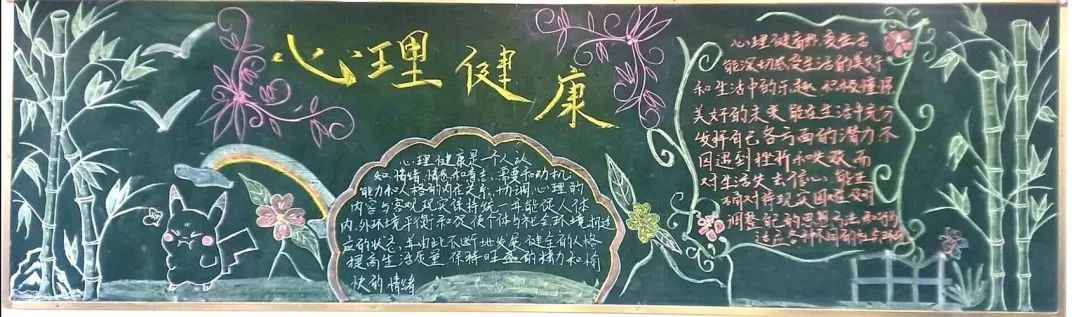 心理健康
心理健康是一个人认
知、情绪、情感和意志、需要和动机、
能力和人格的内在关系协调,心理的
内容与客观现实保持统一,并能促人体
内、外环境平衡和促使个体与社会环境相适
应的状态,并由此不断地发展健全的人格
提高生活质量,保持旺盛的精力和愉
快的情绪
心理健康热爱生活
能深切感受生活的美好
和生活中的乐趣,积极憧憬
美好的未来,能在生活中充分
发挥自己各方面的潜力,不
因遇到挫折和失败而
对生活失去信心,能正
确对待现实困难,及时
调整自己的思想方法和行为
适应各种不同的社与环境